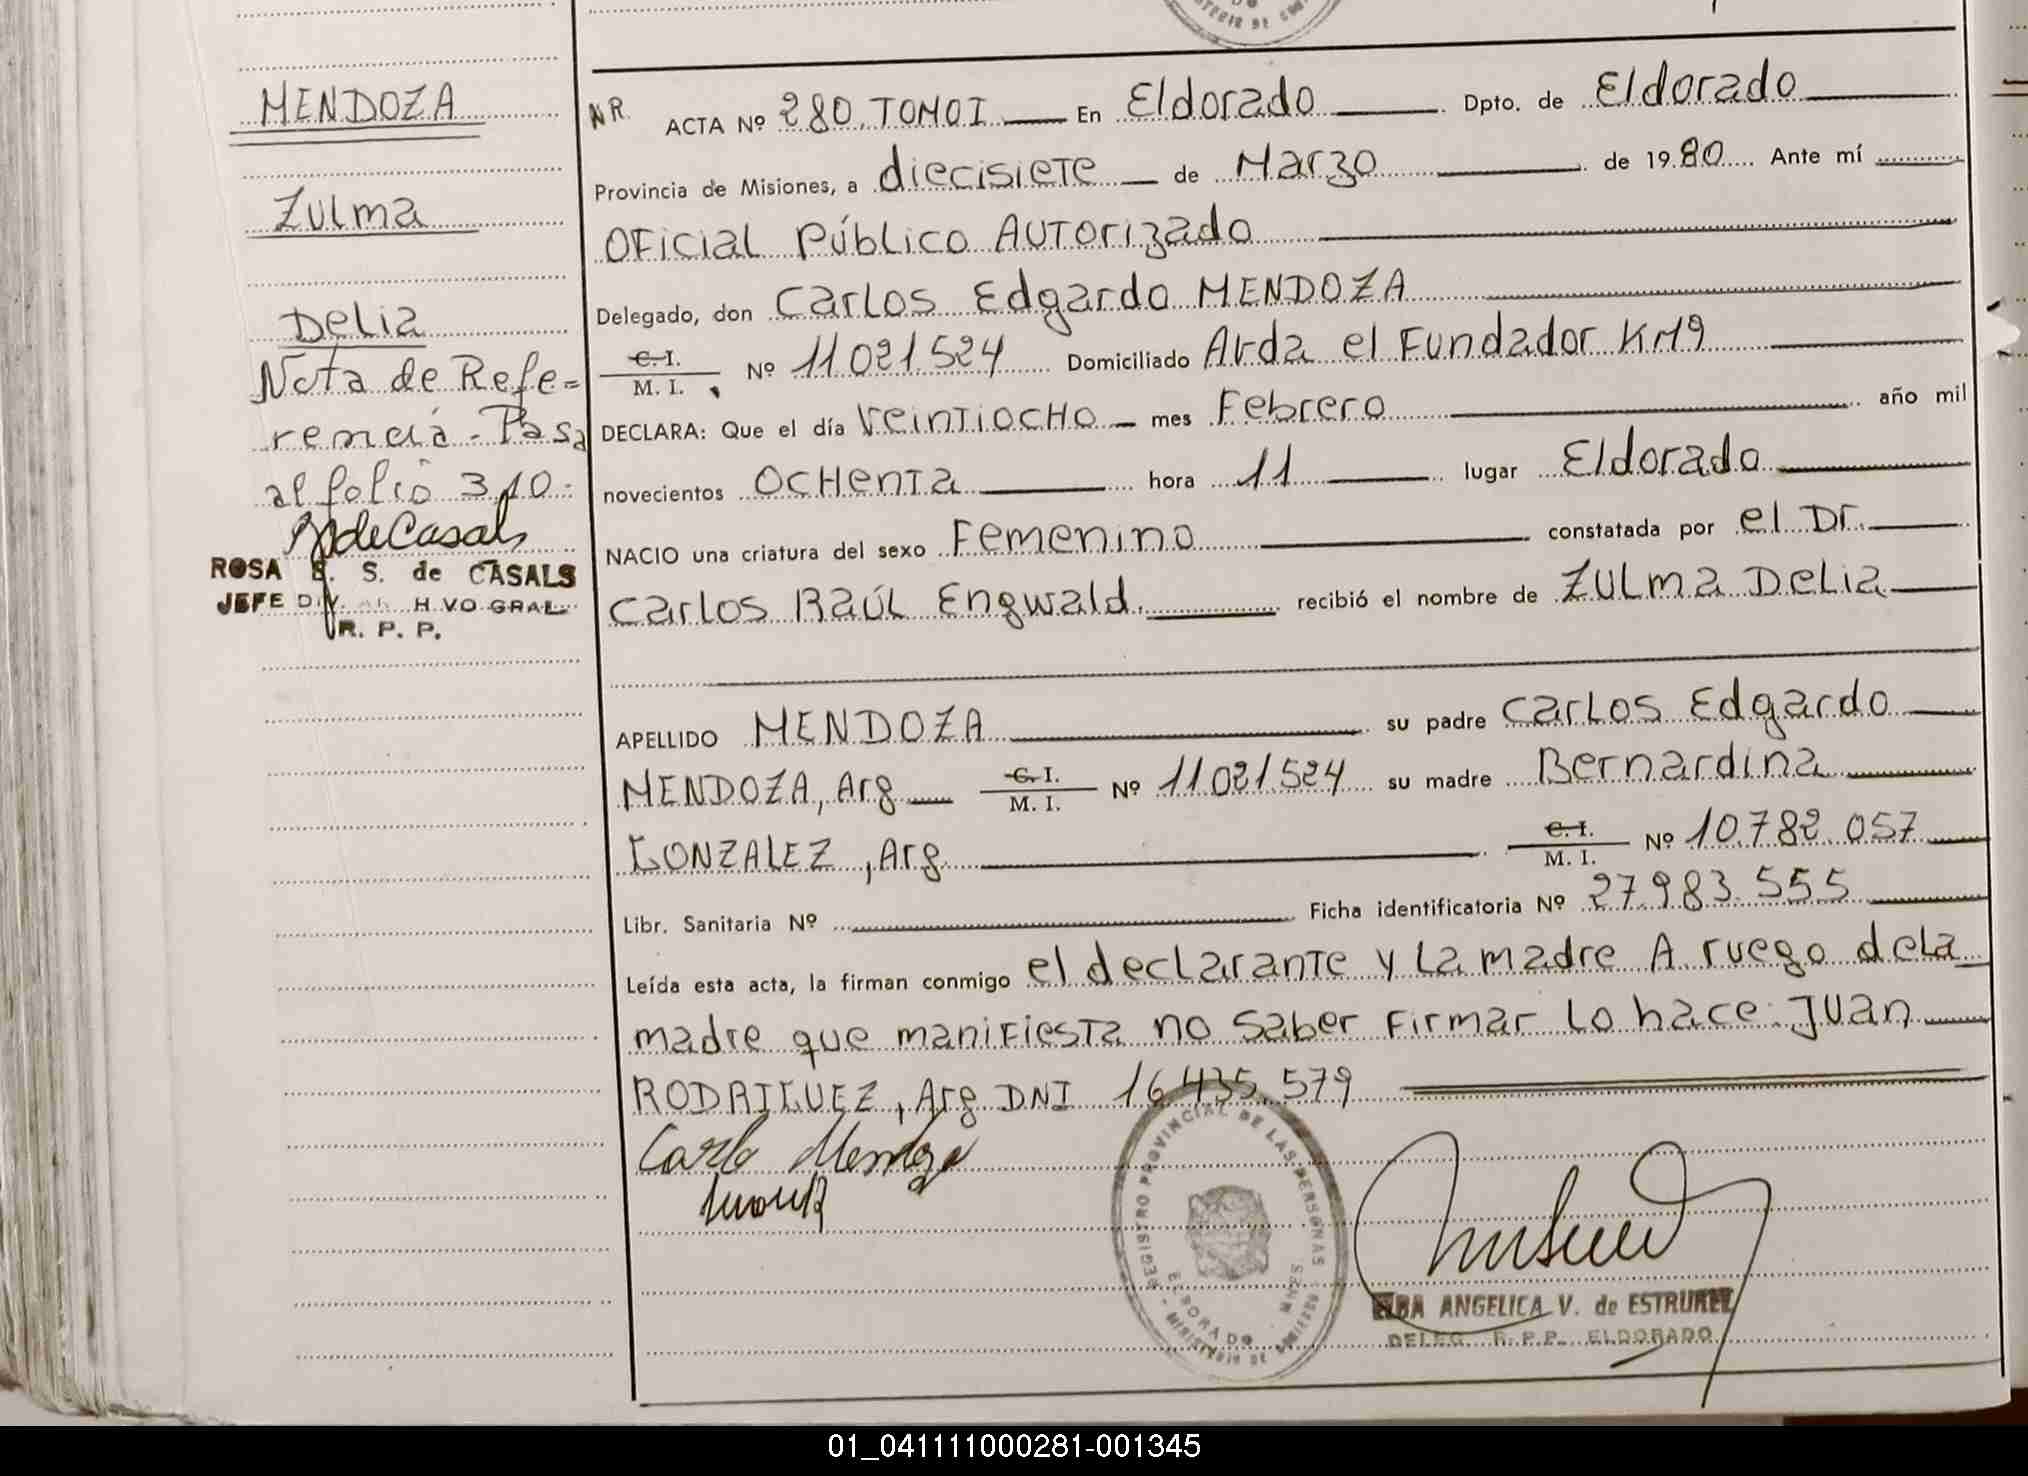 MENDOZA
Zulma
Delia
Nota de Refe=
rencia - Pasa
al folio 310.
ROSA S. S. de CASALS
JEFE DIV. H VO GRAL.
R. P. P.
NR. ACTA Nº 280. TOMO I En Eldorado Dpto. de Eldorado
Provincia de Misiones, a diecisiete de Marzo de 1980 Ante mí
Oficial Público Autorizado
Delegado, don Carlos Edgardo MENDOZA
C. I.
M. I. Nº 11.021.524 Domiciliado Avda el Fundador KM9
DECLARA: Que el día Veintiocho mes Febrero año mil
novecientos Ochenta hora 11 lugar Eldorado
NACIO una criatura del sexo Femenino constatada por el Dr.
Carlos Raúl Engwald. recibió el nombre de Zulma Delia
APELLIDO MENDOZA su padre Carlos Edgardo
MENDOZA, Arg C. I.
M. I. Nº 11.021.524 su madre Bernardina
GONZALEZ, Arg C. I.
M. I. Nº 10.782.057
Libr. Sanitaria Nº Ficha identificatoria Nº 27.983.555
Leída esta acta, la firman conmigo el declarante y la madre A ruego dela
madre que manifiesta no saber firmar lo hace: Juan
RODRIGUEZ, Arg DNI 16.435.579
Carlo Mendoza
REGISTRO PROVINCIAL DE LAS PERSONAS
ELDORADO MNES
MINISTERIO DE
ELBA ANGELICA V. de ESTRUREL
DELEG. R.P.P. ELDORADO
01_041111000281-001345